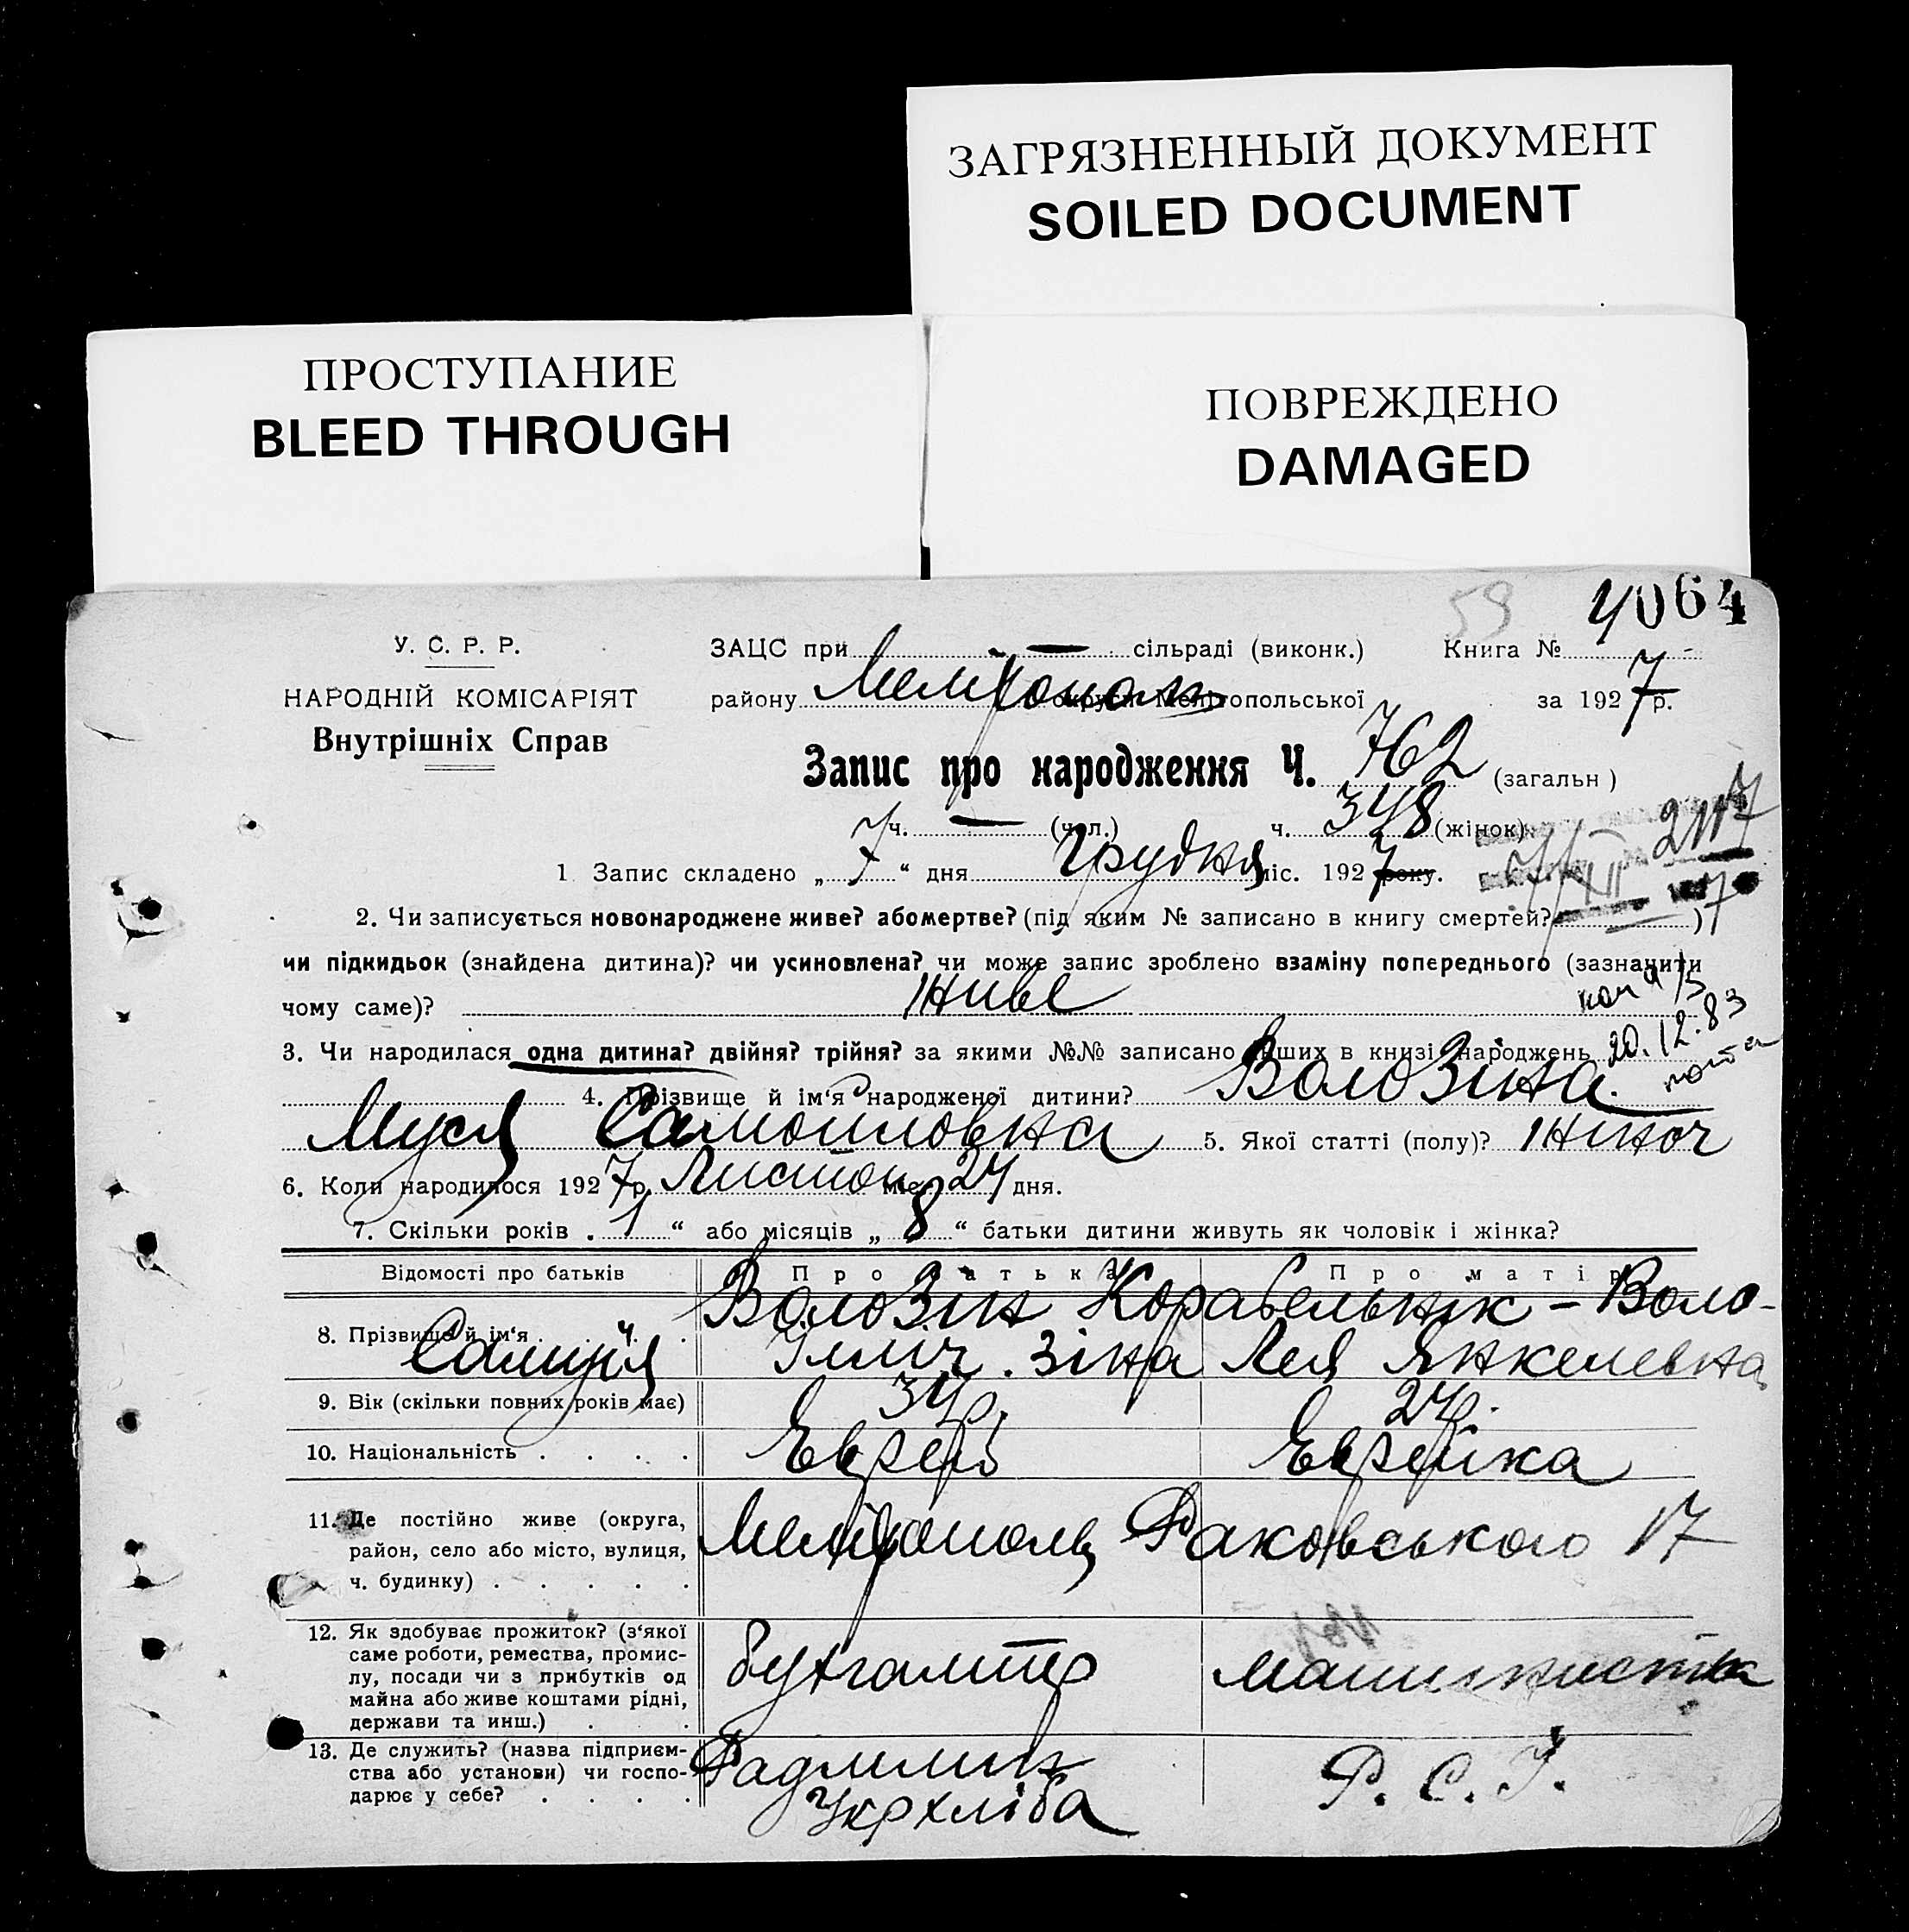 ЗАГРЯЗНЕННЫЙ ДОКУМЕНТ
SOILED DOCUMENT
ПРОСТУПАНИЕ
BLEED THROUGH
ПОВРЕЖДЕНО
DAMAGED
59 4064
У. С. Р. Р.
НАРОДНІЙ КОМІСАРІЯТ
Внутрішніх Справ
ЗАЦС при — сільраді (виконк.) Книга №
району Мелітополь округи Мелітопольської за 1927 р.
Запис про народження Ч. 762 (загальн )
ч. — (чол.) ч. 348 (жінок)
2117
1 Запис складено „ 7 “ дня Грудня міс. 1927 року. 7/XII 7
2. Чи записується новонароджене живе? абомертве? (під яким № записано в книгу смертей? )
чи підкидьок (знайдена дитина)? чи усиновлена? чи може запис зроблено взаміну попереднього (зазначити
чому саме)? Живе
20.12.83
3. Чи народилася одна дитина? двійня? трійня? за якими №№ записано інших в книзі народжень
4. Прізвище й ім‘я народженої дитини? Волозіна
Муся Самойловна 5. Якої статті (полу)? Жіноч
6. Коли народилося 1927 р. Листоп міс. 24 дня.
7. Скільки років „ 1 “ або місяців „ 8 “ батьки дитини живуть як чоловік і жінка?
Відомості про батьків Про батька Про матір
8. Прізвище й ім‘я . . . . Волозін Корабельнік - Воло-
Самуїл Ілліч. зіна Лея Янкелевна
9. Вік (скільки повних років має) 34 р. 24 р.
10. Національність . . . . Еврей Еврейка
11. Де постійно живе (округа,
район, село або місто, вулиця,
ч. будинку) . . . . .
Мелітополь Раковського 17
12. Як здобуває прожиток? (з‘якої
саме роботи, ремества, промис-
лу, посади чи з прибутків од
майна або живе коштами рідні,
держави та инш.) . .
бухгалтер машиністка
13. Де служить? (назва підприєм-
ства або установи) чи госпо-
дарює у себе? . . . .
Радмлин Р. С. І.
Укрхліба